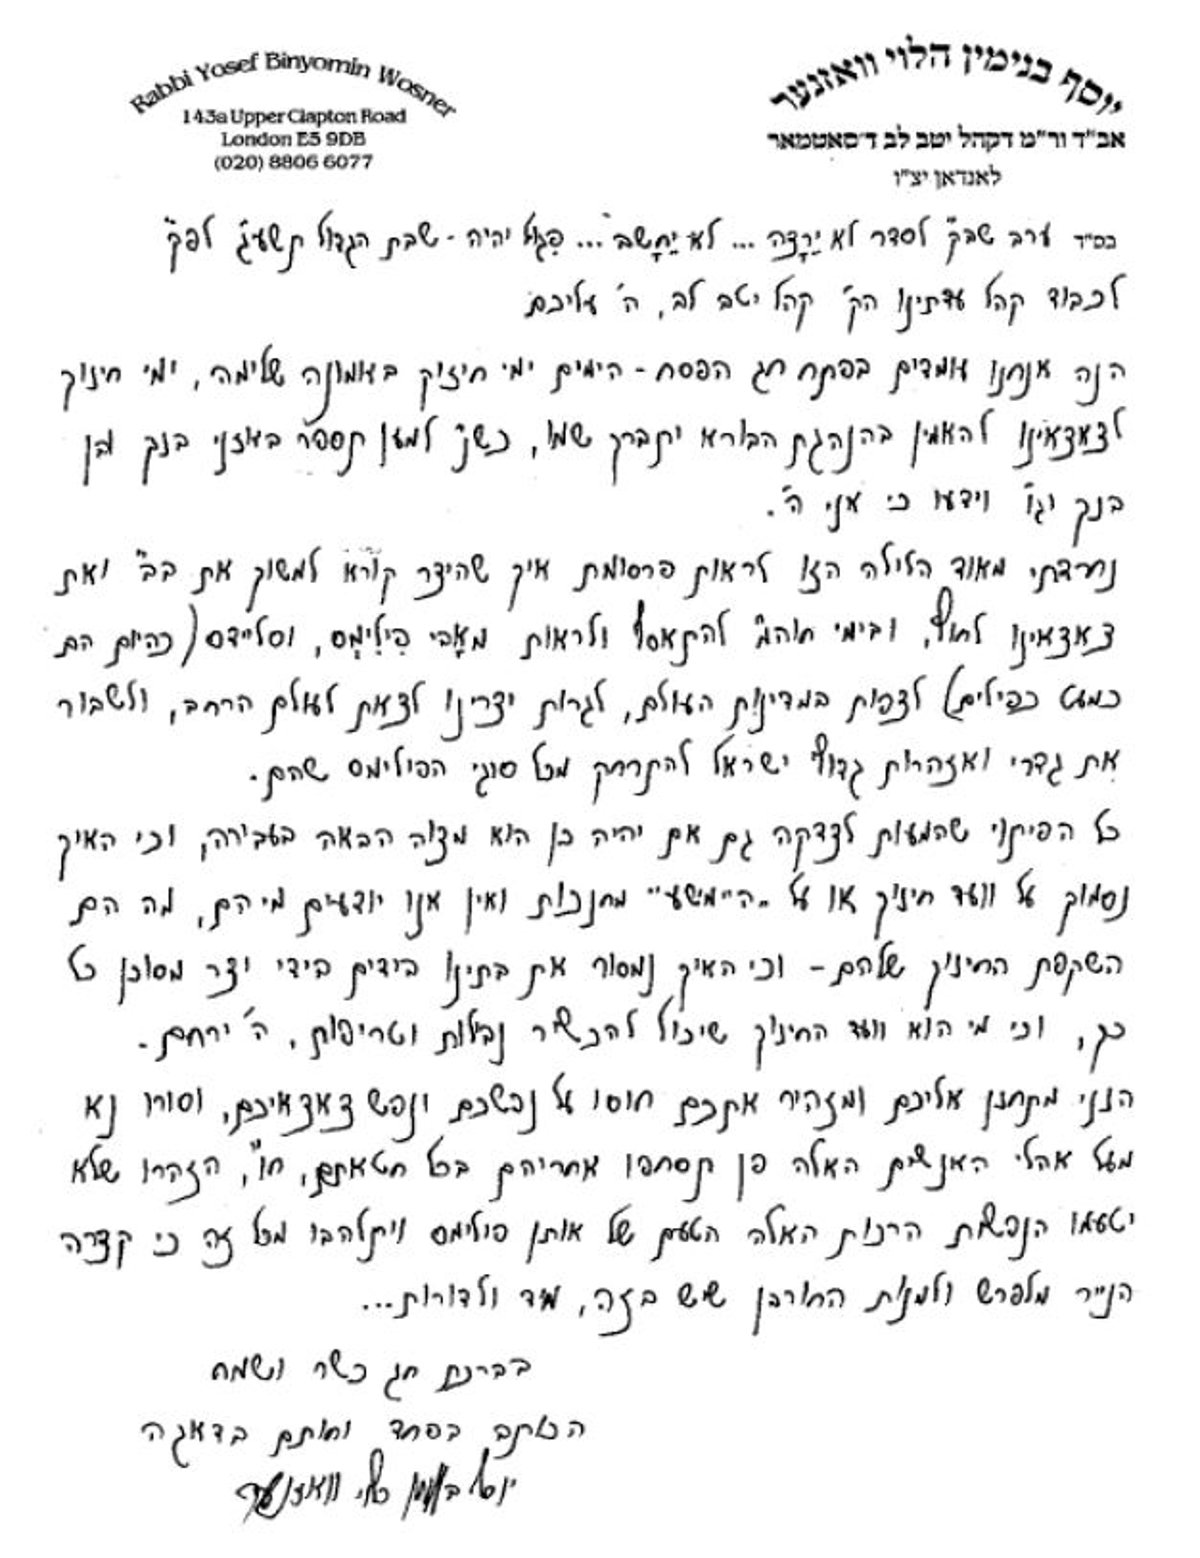 Rabbi Yosef Binyomin Wosner
143a Upper Clapton Road
London E5 9DB
(020) 8806 6077
יוסף בנימין הלוי וואזנער
אב"ד ור"מ דקהל יטב לב ד'סאטמאר
לאנדאן יצ"ו
בס"ד ערב שבק" לסדר לא יֵרָצֶה ... לא יֵחָשֵב ... פִגול יהיה - שבת הגדול תשע"ג לפ"ק
לכבוד קהל עדתינו הק' קהל יטב לב, ה' עליכם
הנה אנחנו עומדים בפתח חג הפסח - הימים ימי חיזוק באמונה שלימה, ימי חינוך
לצאצאינו להאמין בהנהגת הבורא יתברך שמו, כשנ' למען תספר באזני בנך ובן
בנך וגו' וידעו כי אני ה'.
נחרדתי מאוד הלילה הזו לראות פרסומת איך שהיצר קורא למשוך את בב" ואת
צאצאינו לחוץ, ובימי חוהמ" להתאסף ולראות מאָבי פִילִימְס, וסליידס (כהיום הם
כמעט כפילים) לצפות במדינות העולם, לגרות יצרינו לצאת לעולם הרחב, ולשבור
את גדרי ואזהרות גדולי ישראל להתרחק מכל סוגי הפילימס שהם.
כל הפיתוי שהמעות לצדקה גם אם יהיה כן הוא מצוה הבאה בעבירה, וכי האיך
נסמוך על וועד חינוך או על ה"מישע" מחנכות ואין אנו יודעים מי הם, מה הם
השקפת החינוך שלהם - וכי האיך נמסור את בתינו בידים בידי יצר מסוכן כל
כך, וכי מי הוא וועד החינוך שיכול להכשיר נבילות וטריפות, ה' ירחם.
הנני מתחנן אליכם ומזהיר אתכם חוסו על נפשכם ונפש צאצאיכם, וסורו נא
מעל אהלי האנשים האלה פן תסחפו אחריהם בכל חטאתם, חו", הזהרו שלא
יטעמו הנפשות הרכות האלה הטעם של אותן פילימס ויתלהבו מכל זה כי קצרה
הנייר מלפרש ולמנות החורבן שיש בזה, מיד ולדורות...
בברכת חג כשר ושמח
הכותב בפחד וחותם בדאגה
יוסף בנימין הלוי וואזנער